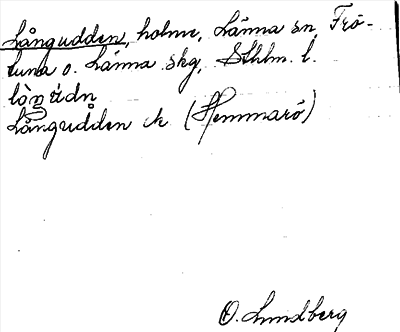 Långudden, holme, Länna sn, Frö-
tuna o. Länna skg, Sthlm. l.
Långudden ek (Hemmarö)
O. Lundberg